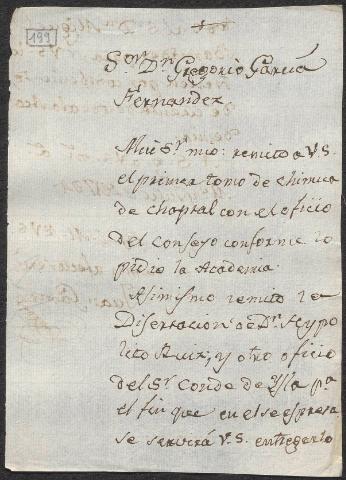 199
Sor. Dn. Gregorio Garcia
Fernandez
Mui Sr. mio: remito a V.S.
el primer tomo de chimica
de chaptal con el oficio
del Consejo conforme lo
pidio la Academia.
Asimismo remito la
Disertacion de Dn. Hypo
lito Ruiz, y otro oficio
del Sr. Conde de Isla pa.
el fin que en el se espresa
se servirá V.S. entregarlo